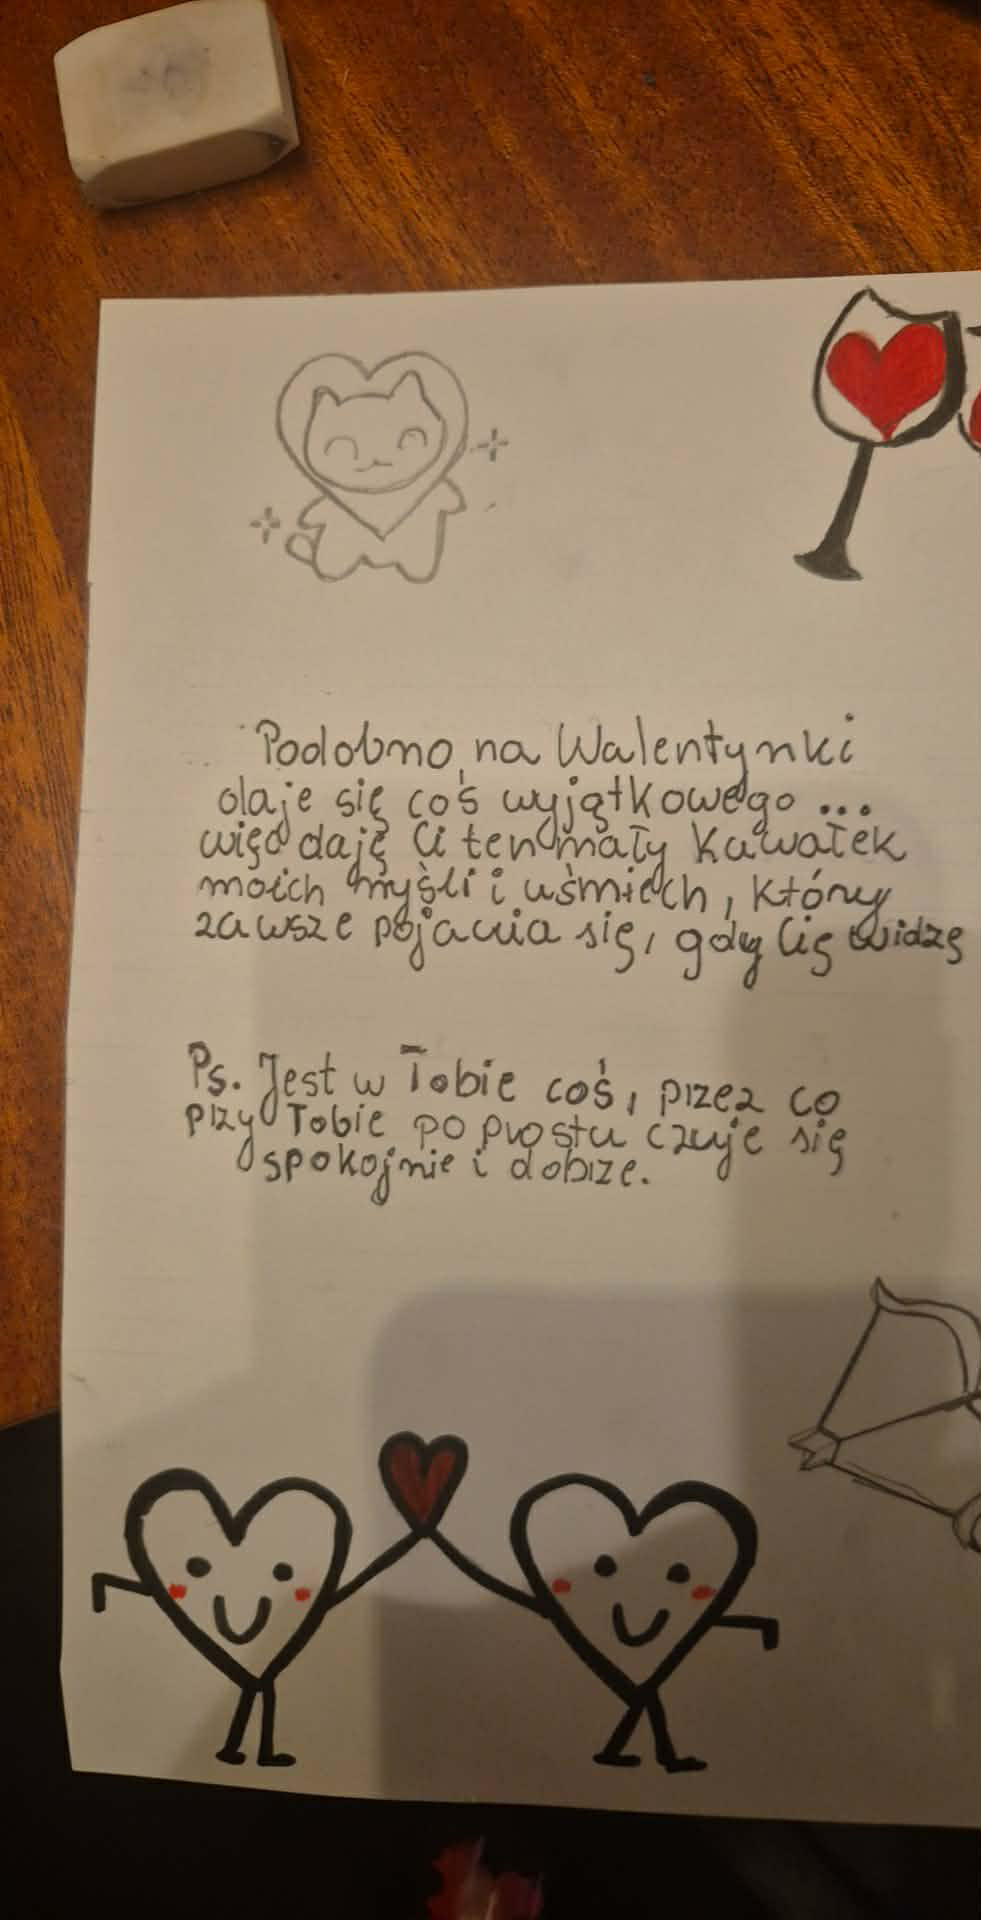 Podobno na Walentynki
daje się coś wyjątkowego ...
więc daję Ci ten mały kawałek
moich myśli i uśmiech, który
zawsze pojawia się, gdy Cię widzę
Ps. Jest w Tobie coś, przez co
przy Tobie po prostu czuje się
spokojnie i dobrze.